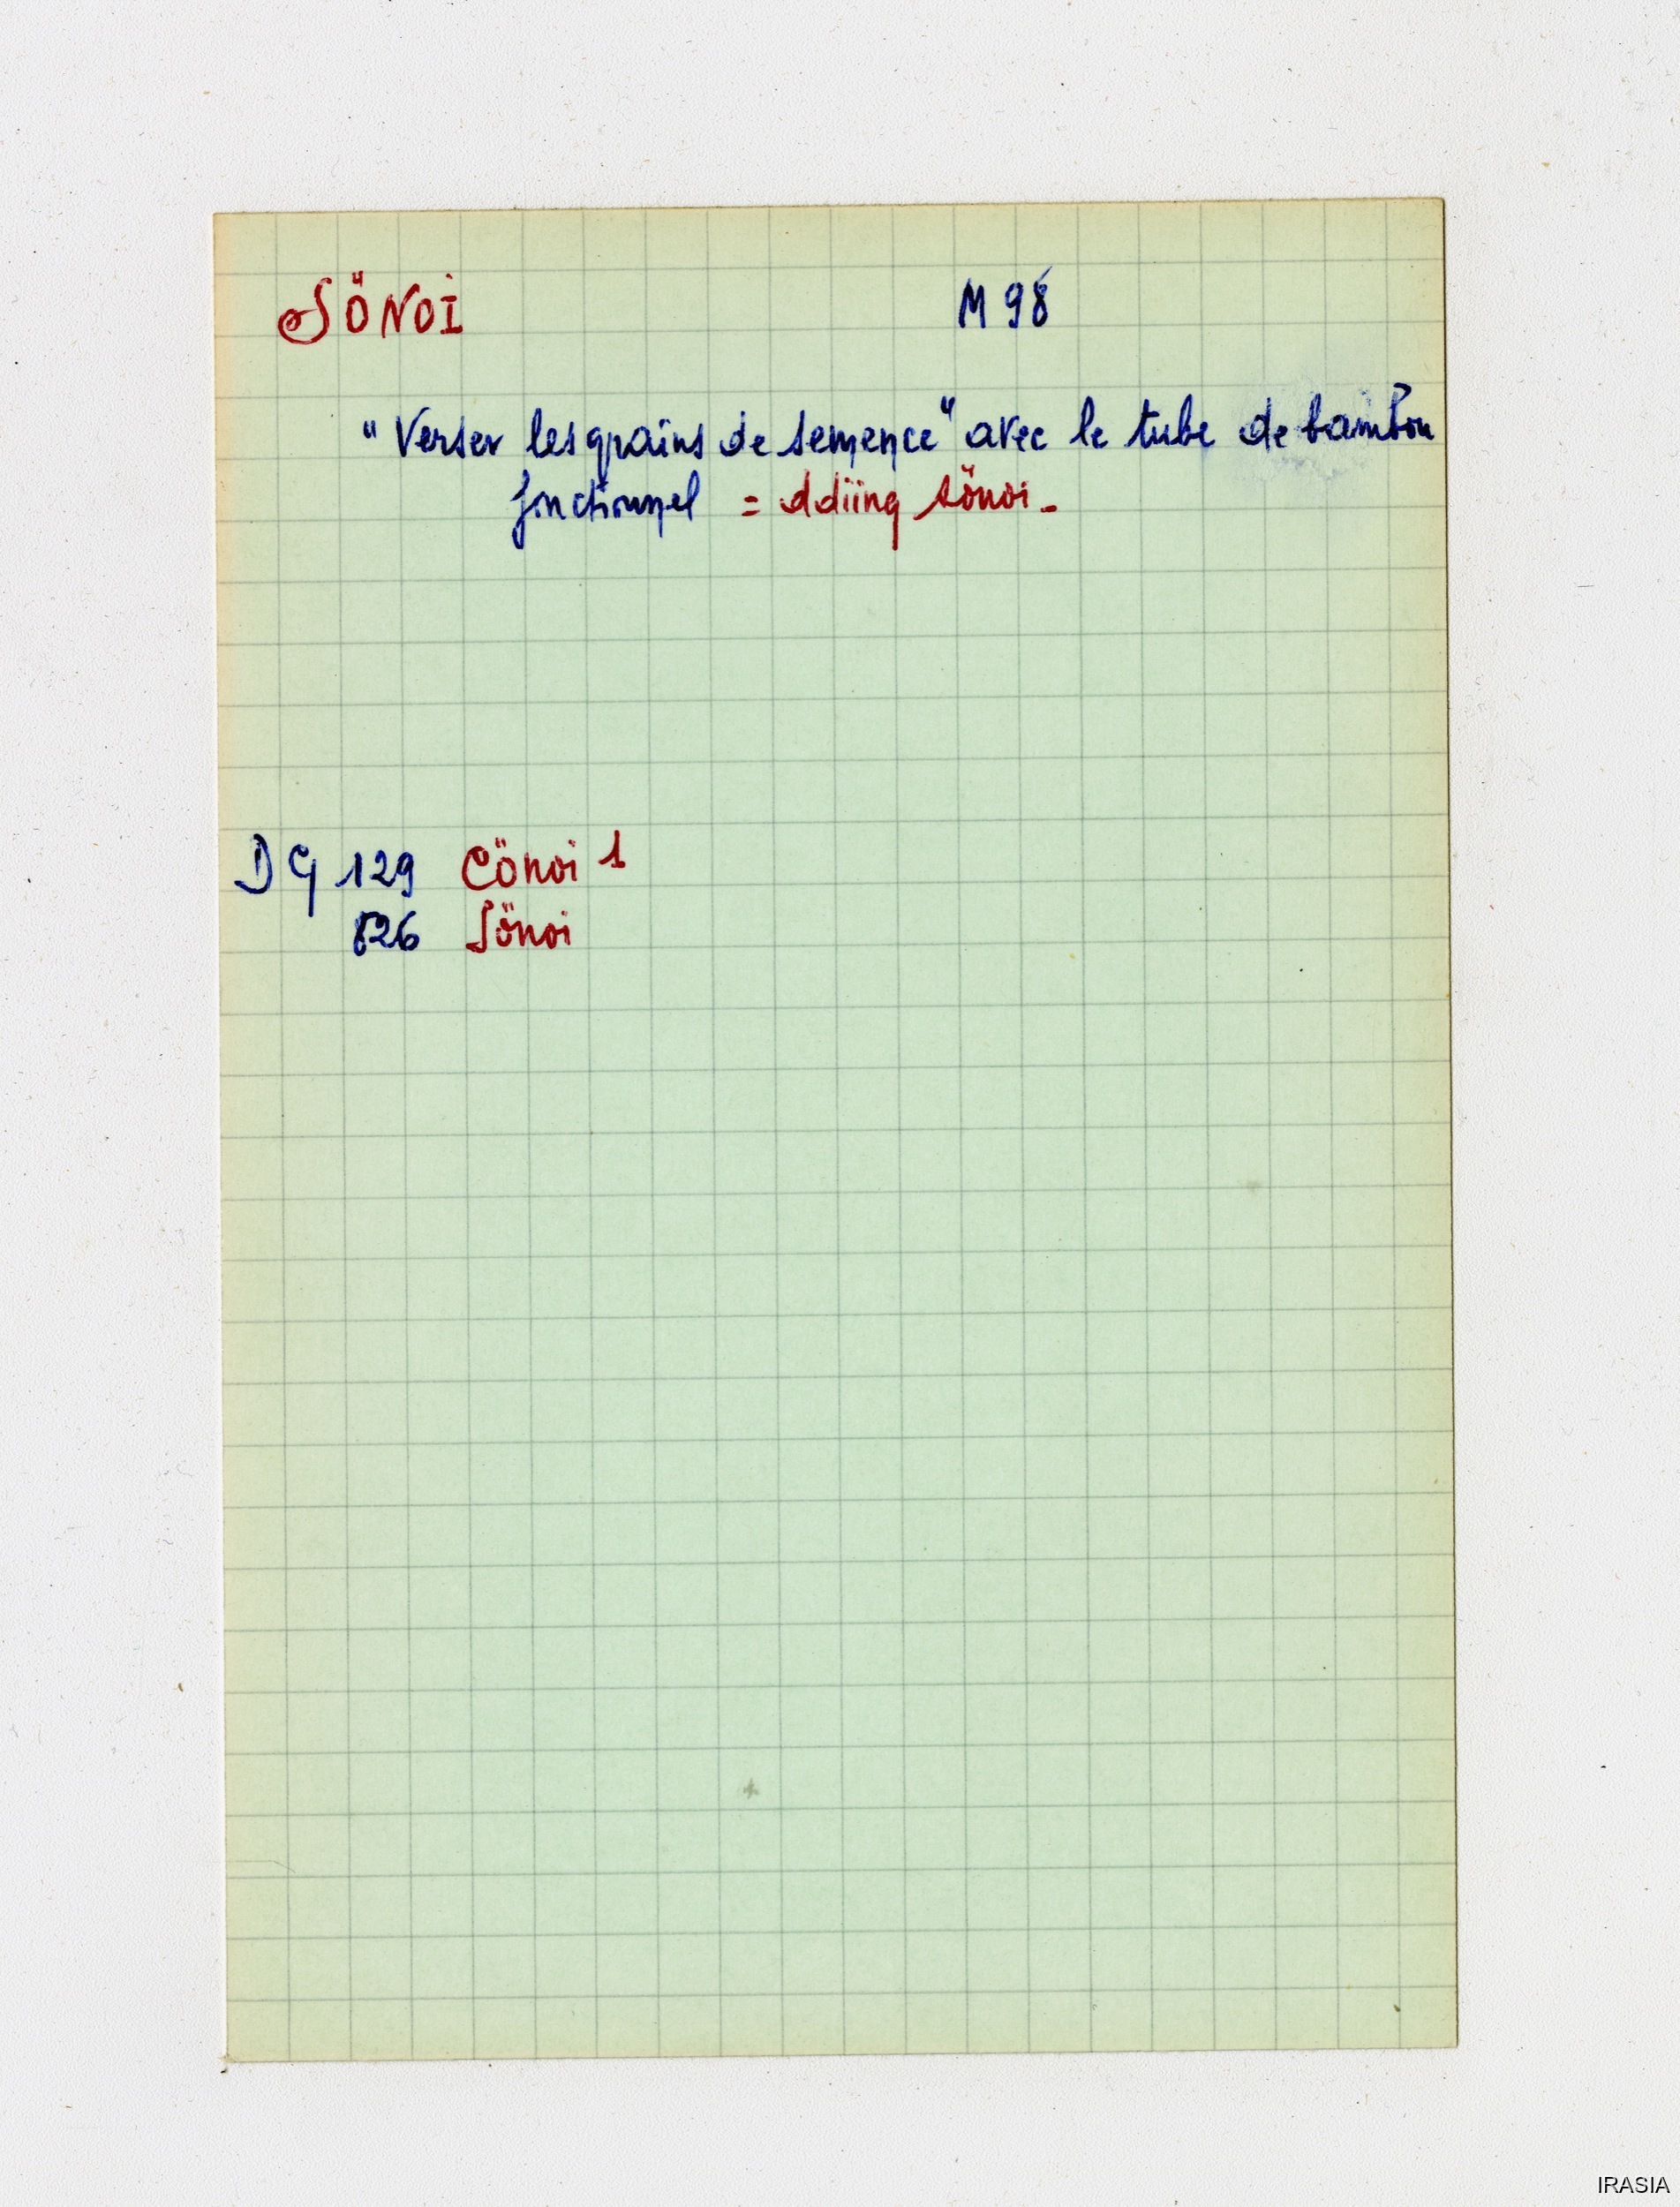 SÖNOI M 98
"Verser les grains de semence" avec le tube de bambou
fonctionnel = ddiing sönoi -
DG 129 Cönoi 1
826 Sönoi
IRASIA